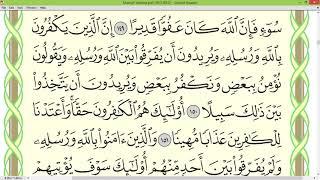 سُوٓءٍ فَإِنَّ ٱللَّهَ كَانَ عَفُوًّا قَدِيرًا ١٤٩ إِنَّ ٱلَّذِينَ يَكْفُرُونَ
بِٱللَّهِ وَرُسُلِهِۦ وَيُرِيدُونَ أَن يُفَرِّقُوا۟ بَيْنَ ٱللَّهِ وَرُسُلِهِۦ وَيَقُولُونَ
نُؤْمِنُ بِبَعْضٍ وَنَكْفُرُ بِبَعْضٍ وَيُرِيدُونَ أَن يَتَّخِذُوا۟
بَيْنَ ذَٰلِكَ سَبِيلًا ١٥٠ أُو۟لَٰٓئِكَ هُمُ ٱلْكَٰفِرُونَ حَقًّا وَأَعْتَدْنَا
لِلْكَٰفِرِينَ عَذَابًا مُّهِينًا ١٥١ وَٱلَّذِينَ ءَامَنُوا۟ بِٱللَّهِ وَرُسُلِهِۦ
وَلَمْ يُفَرِّقُوا۟ بَيْنَ أَحَدٍ مِّنْهُمْ أُو۟لَٰٓئِكَ سَوْفَ يُؤْتِيهِمْ